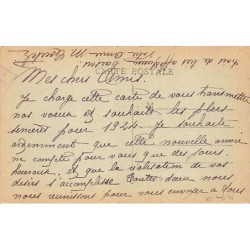 CARTE POSTALE
Mes chers Amis.
Je charge cette carte de vous transmettre
nos vœux et souhaits les plus
sincères pour 1924. Je souhaite
que cette nouvelle année
ne compte pour vous que des jours
heureux, et que la réalisation de vos
désirs s'accomplisse. Toutes deux nous
nous réunissons pour vous envoyer à tous